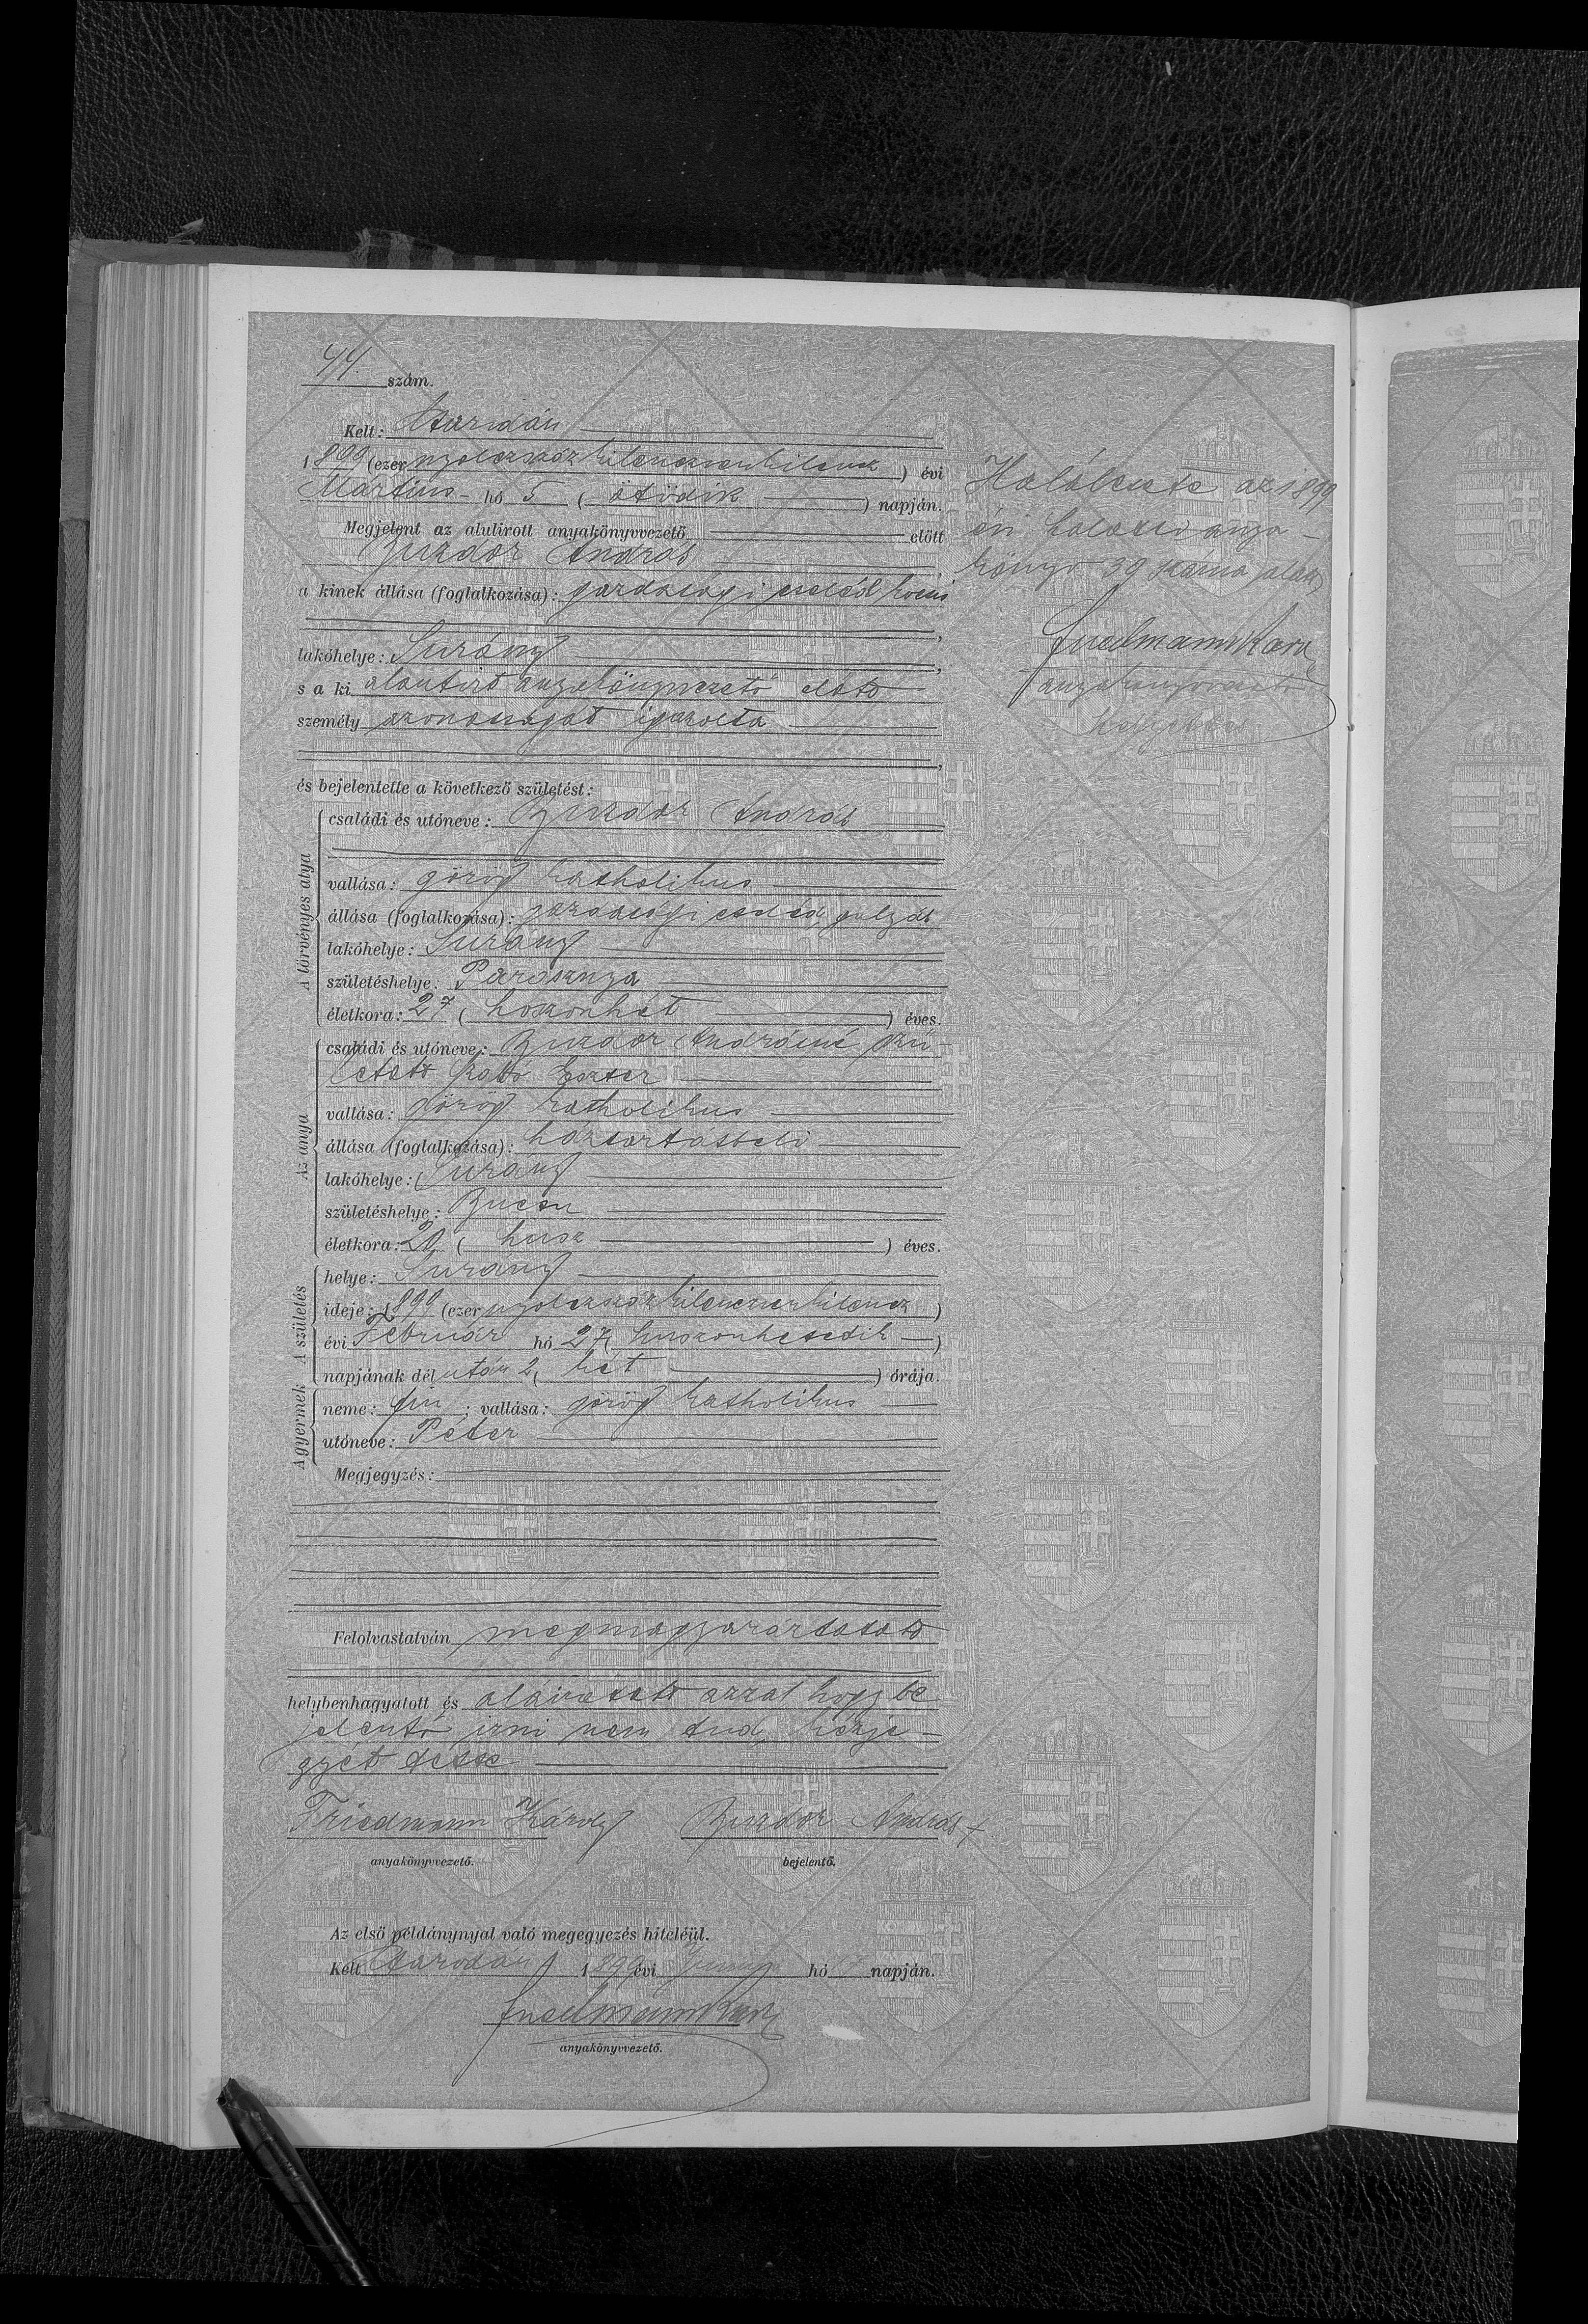 44. szám.
Kelt: Maridán
1899 (ezer nyolczszáz kilenczvenkilencz) évi
Martius hó 5 (ötödik) napján.
Megjelent az alulirott anyakönyvvezető előtt
Buzdor András
a kinek állása (foglalkozása): gazdasági cseléd kocsis
lakóhelye: Surány
s a ki alantirt anyakönyvvezető előtt
személy azonosságát igazolta
és bejelentette a következő születést:
A törvényes atya
családi és utóneve: Buzdor András
vallása: görög katholikus
állása (foglalkozása): gazdasági cseléd, gulyás
lakóhelye: Surány
születéshelye: Paroznya
életkora: 27 (huszonhét) éves.
Az anya
családi és utóneve: Buzdor Andrásné szü-
letett Eszter
vallása: görög katholikus
állása (foglalkozása): háztartásbeli
lakóhelye: Surány
születéshelye: Bucsu
életkora: 20 (husz) éves.
A születés
helye: Surány
ideje: 1899 (ezer nyolczszáz kilenczvenkilencz)
évi Február hó 27 (huszonhetedik)
napjának délután 2 (két) órája.
A gyermek
neme: fiu; vallása: görög katholikus
utóneve: Péter
Megjegyzés:
Felolvastatván megmagyaráztatott
helybenhagyatott és aláiratott azzal hogy be
jelentő irni nem tud, kézje-
gyét tette
Friedmann Károly Buzdor András +
anyakönyvvezető. bejelentő.
Az első példánynyal való megegyezés hiteléül.
Kelt 1899 évi hó napján.
Friedmann Károly
anyakönyvvezető.
Halálesete az 1899
évi halotti anya-
könyv 39 száma alatt
Friedmann Károly
anyakönyvvezető